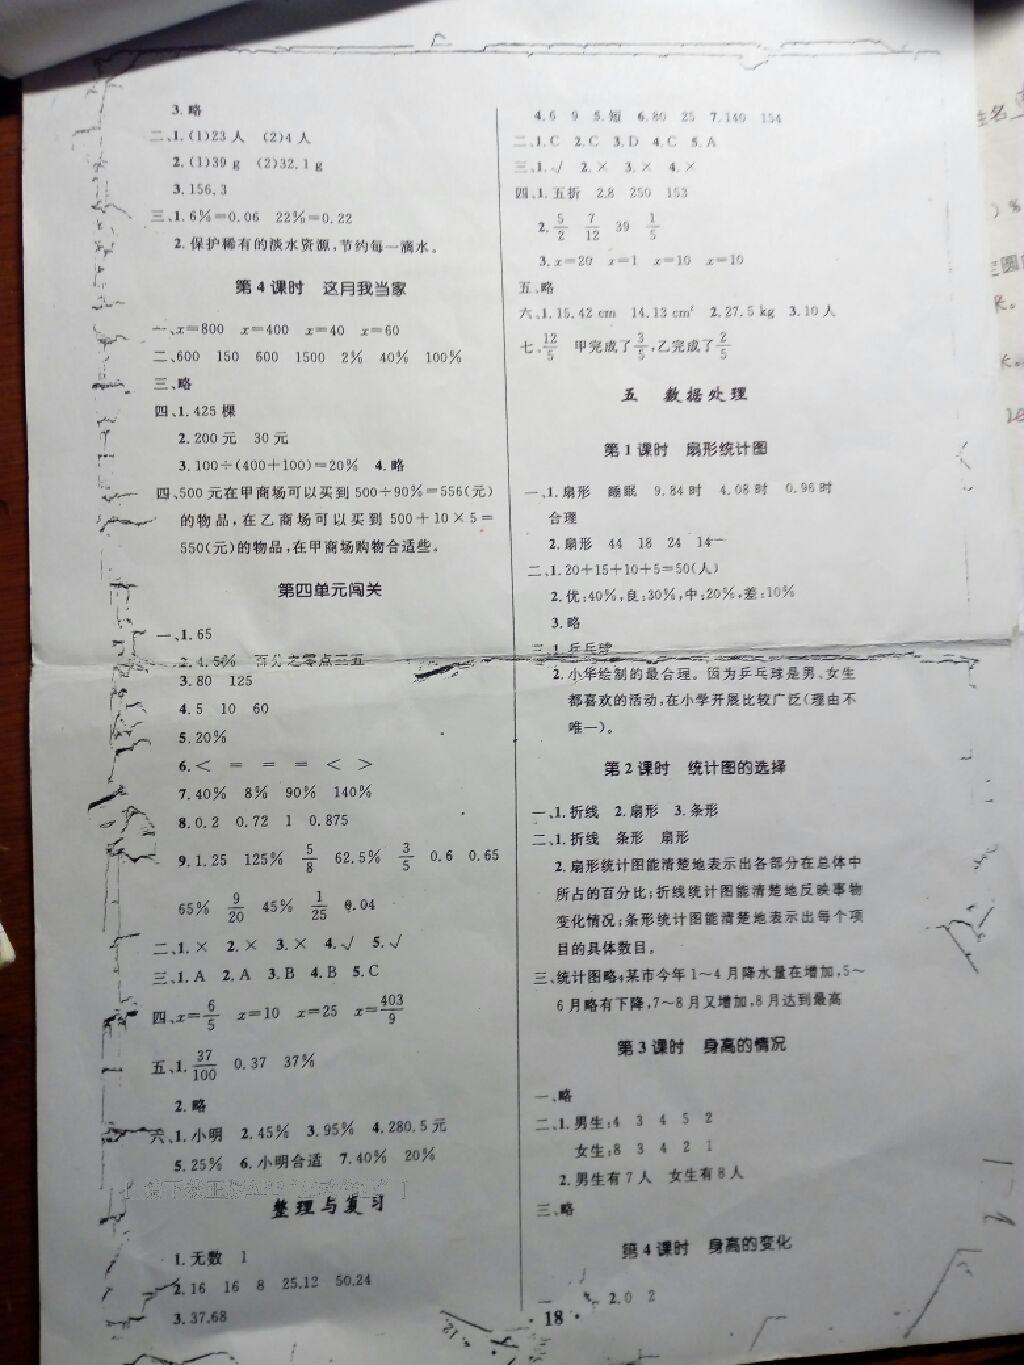 3.略
二、1.(1)23人 (2)4人
2.(1)39 g (2)32.1 g
3.156.3
三、1.6%=0.06 22%=0.22
2.保护稀有的淡水资源,节约每一滴水。
第4课时 这月我当家
一、x=800 x=400 x=40 x=60
二、600 150 600 1500 2% 40% 100%
三、略
四、1.425棵
2.200元 30元
3.100÷(400+100)=20% 4.略
四、500元在甲商场可以买到500÷90%=556(元)
的物品,在乙商场可以买到500+10×5=
550(元)的物品,在甲商场购物合适些。
第四单元闯关
一、1.65
2.4.5% 百分之零点三五
3.80 125
4.5 10 60
5.20%
6.< = = = < >
7.40% 8% 90% 140%
8.0.2 0.72 1 0.875
9.1.25 125% 5/8 62.5% 3/5 0.6 0.65
65% 9/20 45% 1/25 0.04
二、1.× 2.× 3.× 4.√ 5.√
三、1.A 2.A 3.B 4.B 5.C
四、x=6/5 x=10 x=25 x=403/9
五、1.37/100 0.37 37%
2.略
六、1.小明 2.45% 3.95% 4.280.5元
5.25% 6.小明合适 7.40% 20%
整理与复习
1.无数 1
2.16 16 8 25.12 50.24
3.37.68
4.6 9 5.短 6.80 25 7.140 154
二、1.C 2.C 3.D 4.C 5.A
三、1.√ 2.× 3.× 4.×
四、1.五折 2.8 250 153
2.5/2 7/12 39 1/5
3.x=20 x=1 x=10 x=10
五、略
六、1.15.42 cm 14.13 cm² 2.27.5 kg 3.10人
七、12/5 甲完成了3/5,乙完成了2/5
五 数据处理
第1课时 扇形统计图
一、1.扇形 睡眠 9.84时 4.08时 0.96时
合理
2.扇形 44 18 24 14
二、1.20+15+10+5=50(人)
2.优:40%,良:30%,中:20%,差:10%
3.略
三、1.乒乓球
2.小华绘制的最合理。因为乒乓球是男、女生
都喜欢的活动,在小学开展比较广泛(理由不
唯一)。
第2课时 统计图的选择
一、1.折线 2.扇形 3.条形
二、1.折线 条形 扇形
2.扇形统计图能清楚地表示出各部分在总体中
所占的百分比;折线统计图能清楚地反映事物
变化情况;条形统计图能清楚地表示出每个项
目的具体数目。
三、统计图略,某市今年1~4月降水量在增加,5~
6月略有下降,7~8月又增加,8月达到最高
第3课时 身高的情况
一、略
二、1.男生:4 3 4 5 2
女生:8 3 4 2 1
2.男生有7人 女生有8人
三、略
第4课时 身高的变化
2.0 2
· 18 ·